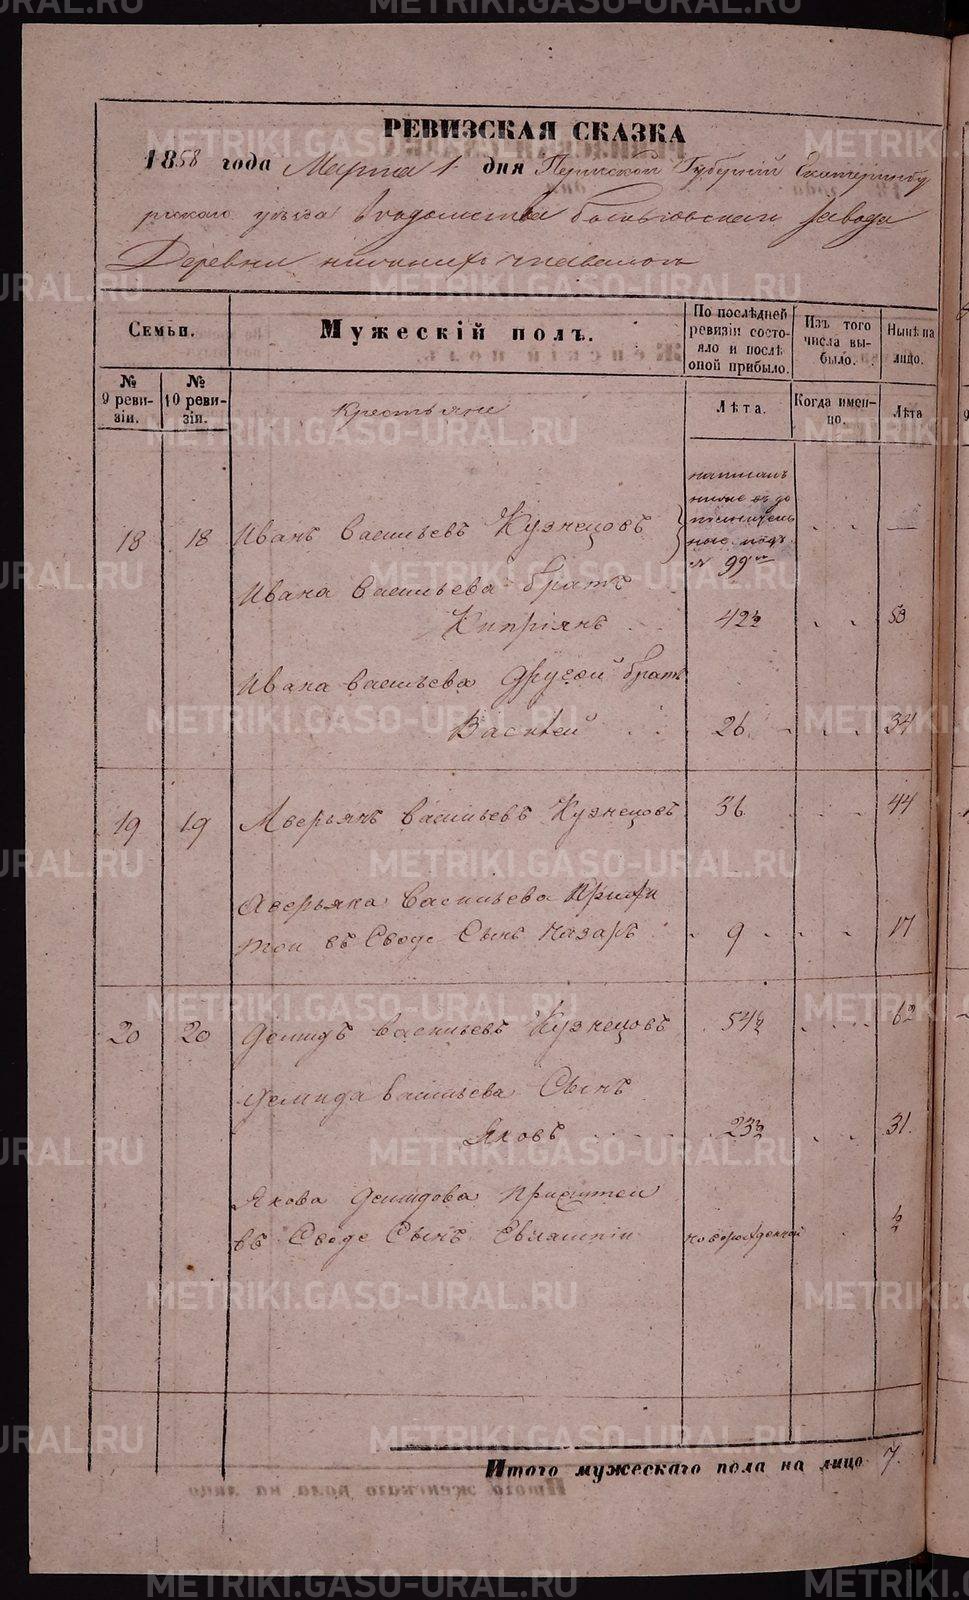 РЕВИЗСКАЯ СКАЗКА
1858 года Марта 1 дня Пермской Губерній Екатеринбу
ргскаго уѣзда Вѣдомства завода
Деревни
Семьи.
Мужескій полъ.
По послѣдней ревизіи состояло и послѣ оной прибыло.
Изъ того числа выбыло.
Нынѣ на лицо.
№ 9 ревизіи.
№ 10 ревизіи.
Крестьяне
Лѣта.
Когда именно.
Лѣта
18 18 Иванъ Васильевъ Кузнецовъ
написанъ
ниже въ до
полнитель
ные подъ
№ 99
Ивана Васильева братъ
Кипріянъ 42½ 50
Ивана Васильева другой братъ
Василей 26 34
19 19 Аверьянъ Васильевъ Кузнецовъ 36 44
Аверьяна Васильева
въ Сынъ Назаръ 9 17
20 20 Демидъ Васильевъ Кузнецовъ 54½ 62
Демида Васильева Сынъ
Яковъ 23½ 31
Якова Демидова
въ Сынъ Евлампій новорожденной ½
Итого мужескаго пола на лицо 7.
METRIKI.GASO-URAL.RU